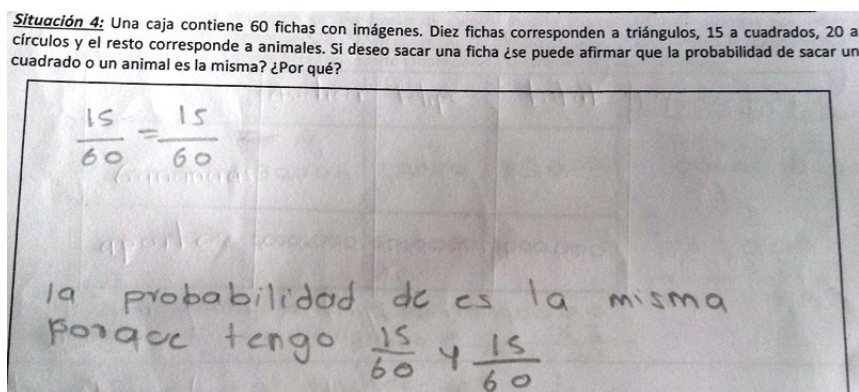 Situación 4: Una caja contiene 60 fichas con imágenes. Diez fichas corresponden a triángulos, 15 a cuadrados, 20 a
círculos y el resto corresponde a animales. Si deseo sacar una ficha ¿se puede afirmar que la probabilidad de sacar un
cuadrado o un animal es la misma? ¿Por qué?
15/60 = 15/60
la probabilidad de es la misma
porque tengo 15/60 y 15/60